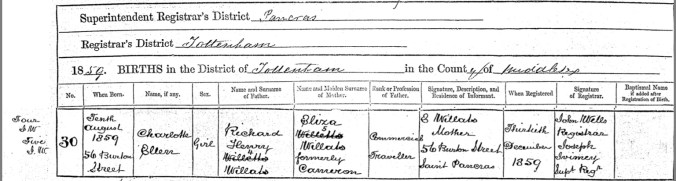 Superintendent Registrar's District Pancras
Registrar's District Tottenham
1859. BIRTHS in the District of Tottenham in the County of Middlesex
No. When Born. Name, if any. Sex. Name and Surname of Father. Name and Maiden Surname of Mother. Rank or Profession of Father. Signature, Description, and Residence of Informant. When Registered Signature of Registrar. Baptismal Name if added after Registration of Birth.
Four
J.W
Five
J.W
30
Tenth
August
1859
56 Burton
Street
Charlotte
Ellen
Girl
Richard
Henry
Willetts
Willats
Eliza
Willetts
Willats
formerly
Cameron
Commercial
Traveller
E Willats
Mother
56 Burton Street
Saint Pancras
Thirtieth
December
1859
John Wells
Registrar
Joseph
Ivimey
Supt Regr